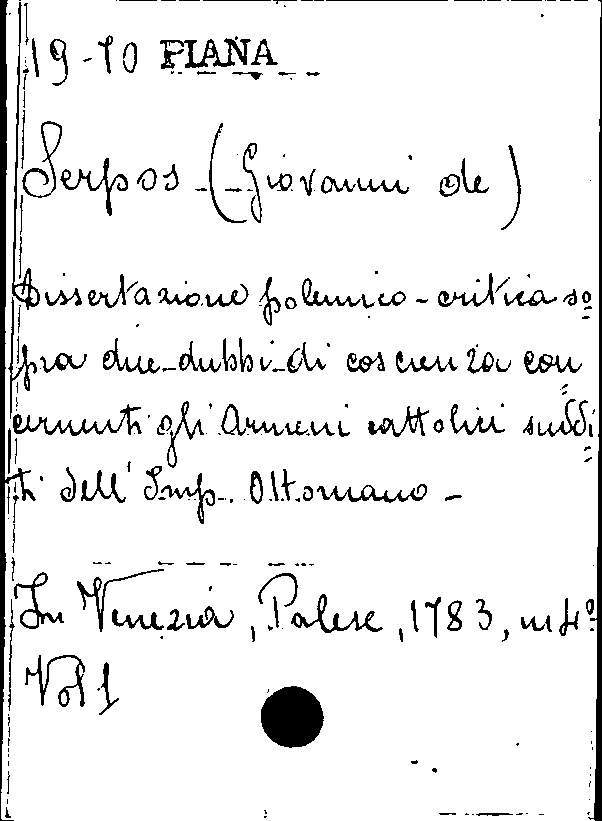 19-10 PIANA
Serpos (Giovanni de)
Dissertazione polemico-critica so=
pra due dubbi di coscienza con=
cernenti gli Armeni cattolici suddi=
ti dell' Imp. Ottomano -
In Venezia, Palese, 1783, in 4º
Vol 1